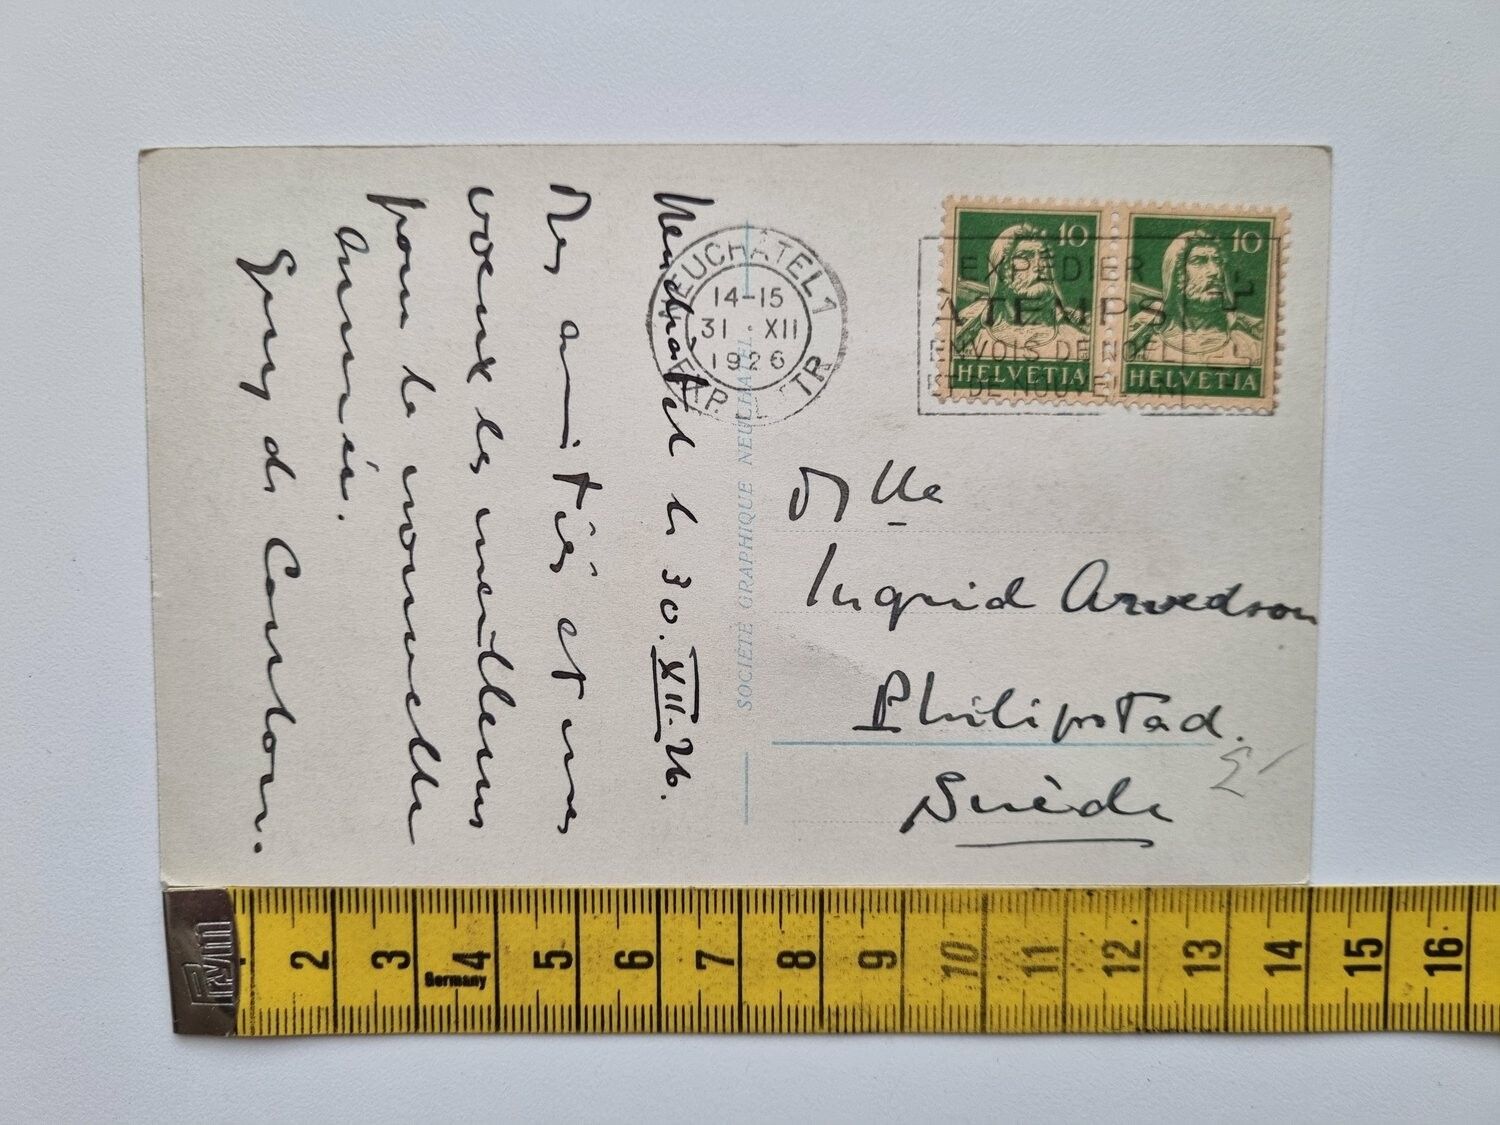 Neuchâtel le 30.XII.26.
Mes amitiés et mes
voeux les meilleurs
pour la nouvelle
année.
Guy de
NEUCHÂTEL 1
14-15
31.XII
1926
EXP. LETTR
SOCIÉTÉ GRAPHIQUE NEUCHATEL
EXPÉDIER
À TEMPS
ENVOIS DE NOËL
ET DE NOUVEL AN
10
HELVETIA
10
HELVETIA
Mlle
Ingrid Arvedson
Philipstad.
Suède
2 3 4 5 6 7 8 9 10 11 12 13 14 15 16
Germany